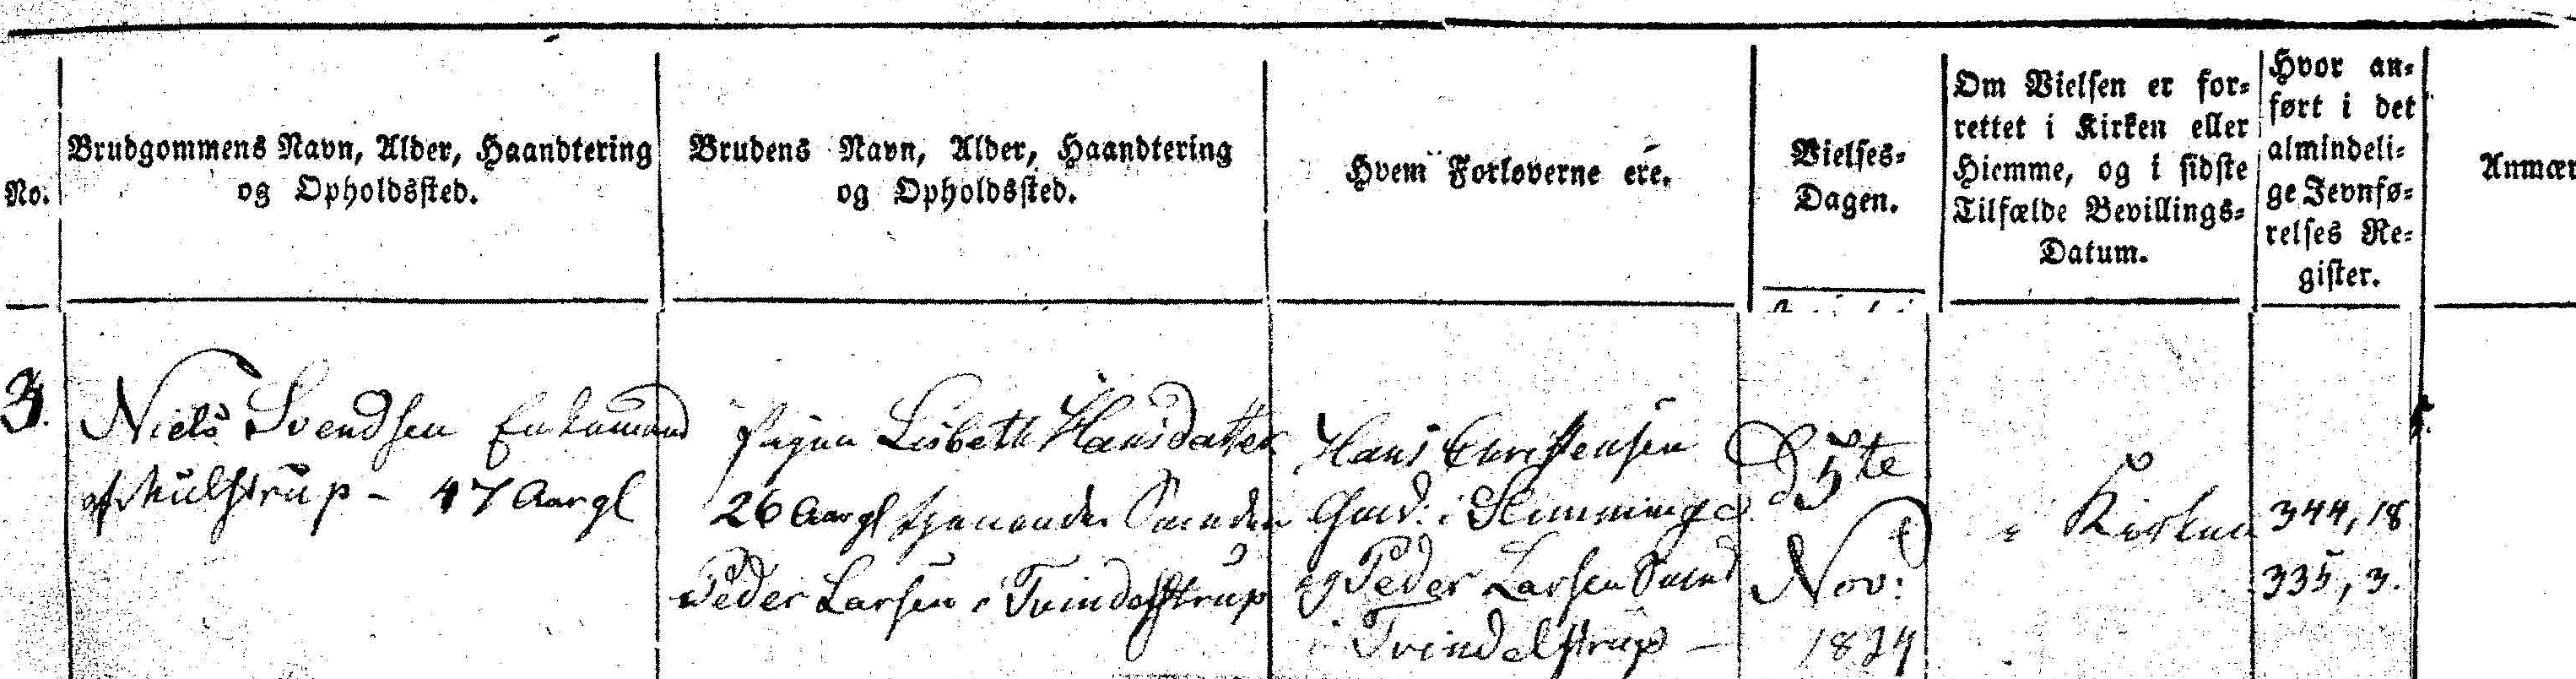 No.
Brudgommens Navn, Alder, Haandtering
og Opholdssted.
Brudens Navn, Alder, Haandtering
og Opholdssted.
Hvem Forloverne ere.
Vielses-
Dagen.
Om Vielsen er for-
rettet i Kirken eller
Hiemme, og i sidste
Tilfælde Bevillings-
Datum.
Hvor an-
ført i det
almindeli-
ge Jevnfø-
relses Re-
gister.
Anmær
3.
Niels Svendsen Enkemand
af Kulstrup - 47 Aar gl
Pigen Lisbeth Hansdatter
26 Aar gl tjenende
Peder Larsen i Tvindelstrup
Hans Christensen
Gmd: i Slimminge
og Peder Larsen Smed
i Tvindelstrup —
D 5te
Nov:
1824
i Kirken
344, 18
335, 3.